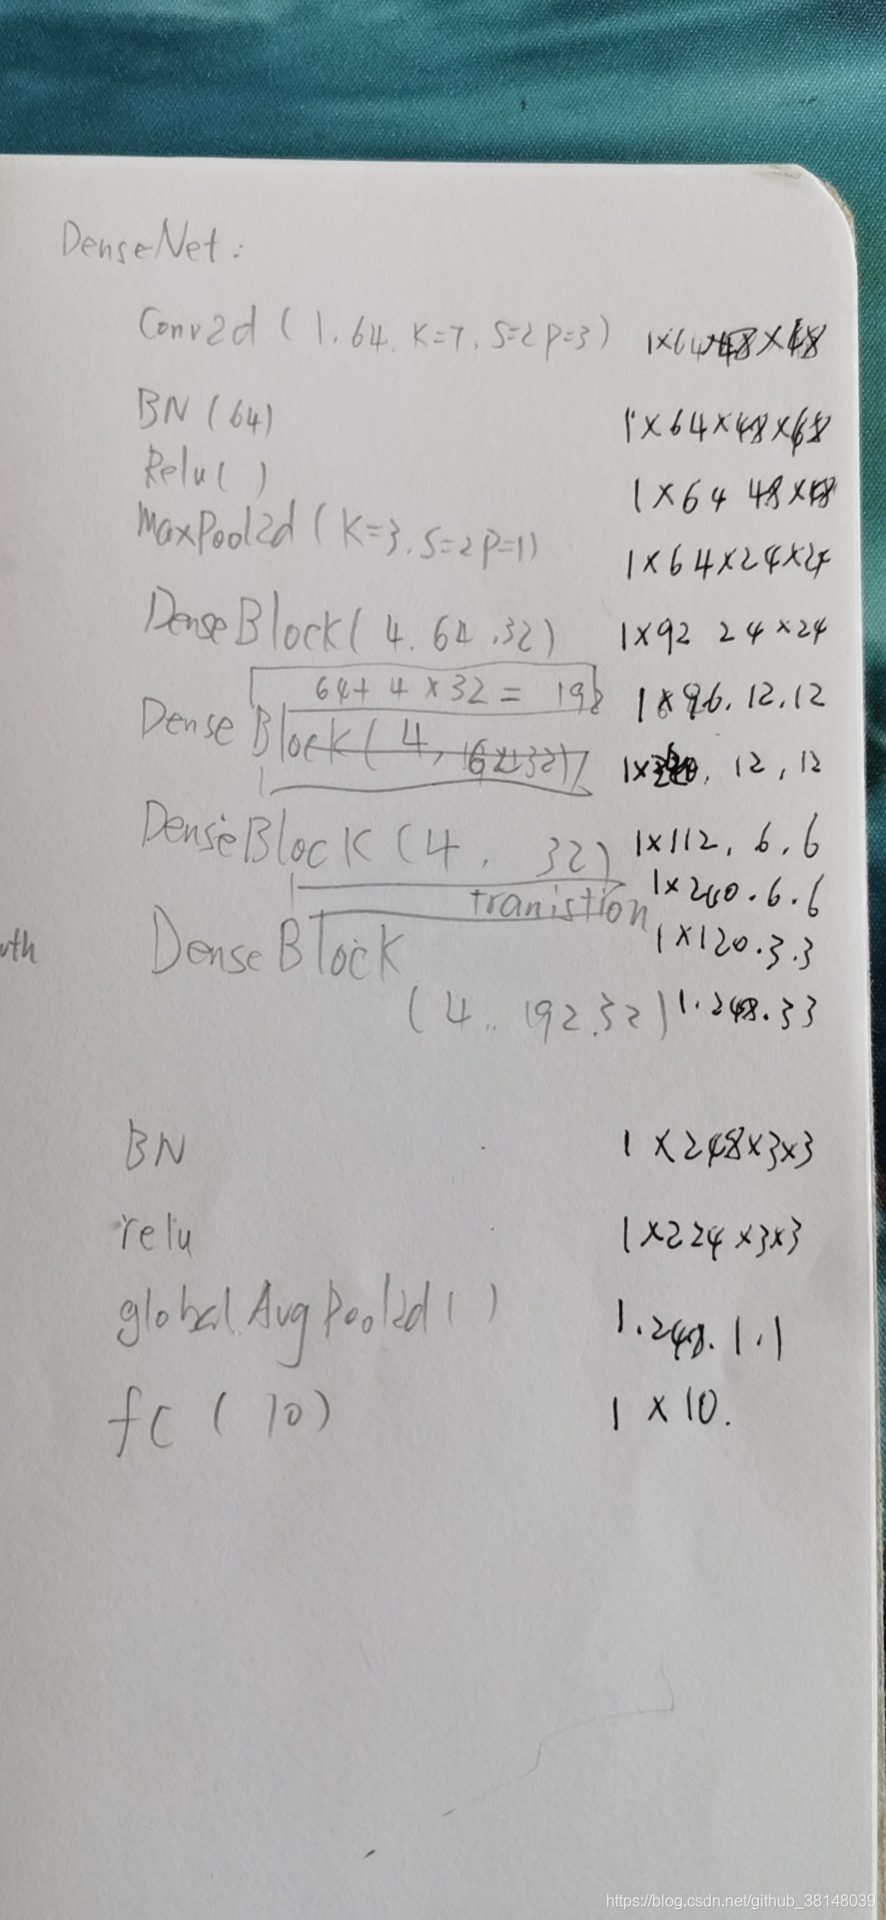 DenseNet:
Conv2d ( 1, 64, K=7, S=2 P=3) 1×64×48×48
BN (64) 1×64×48×68
Relu( ) 1×64 48×48
MaxPool2d ( K=3, S=2 P=1) 1×64×24×24
DenseBlock( 4, 64, 32) 1×92 24×24
64+ 4×32 = 192 1×96, 12, 12
Dense Block( 4,
1× , 12, 12
DenseBlock (4, 32) 1×112, 6, 6
1×240.6.6
tranistion
1×120.3.3
wth
DenseBlock
(4.. 192.32) 1.248.33
BN 1×248×3×3
relu 1×224×3×3
global AvgPool2d( ) 1.248.1.1
fc ( 10) 1×10.
https://blog.csdn.net/github_38148039